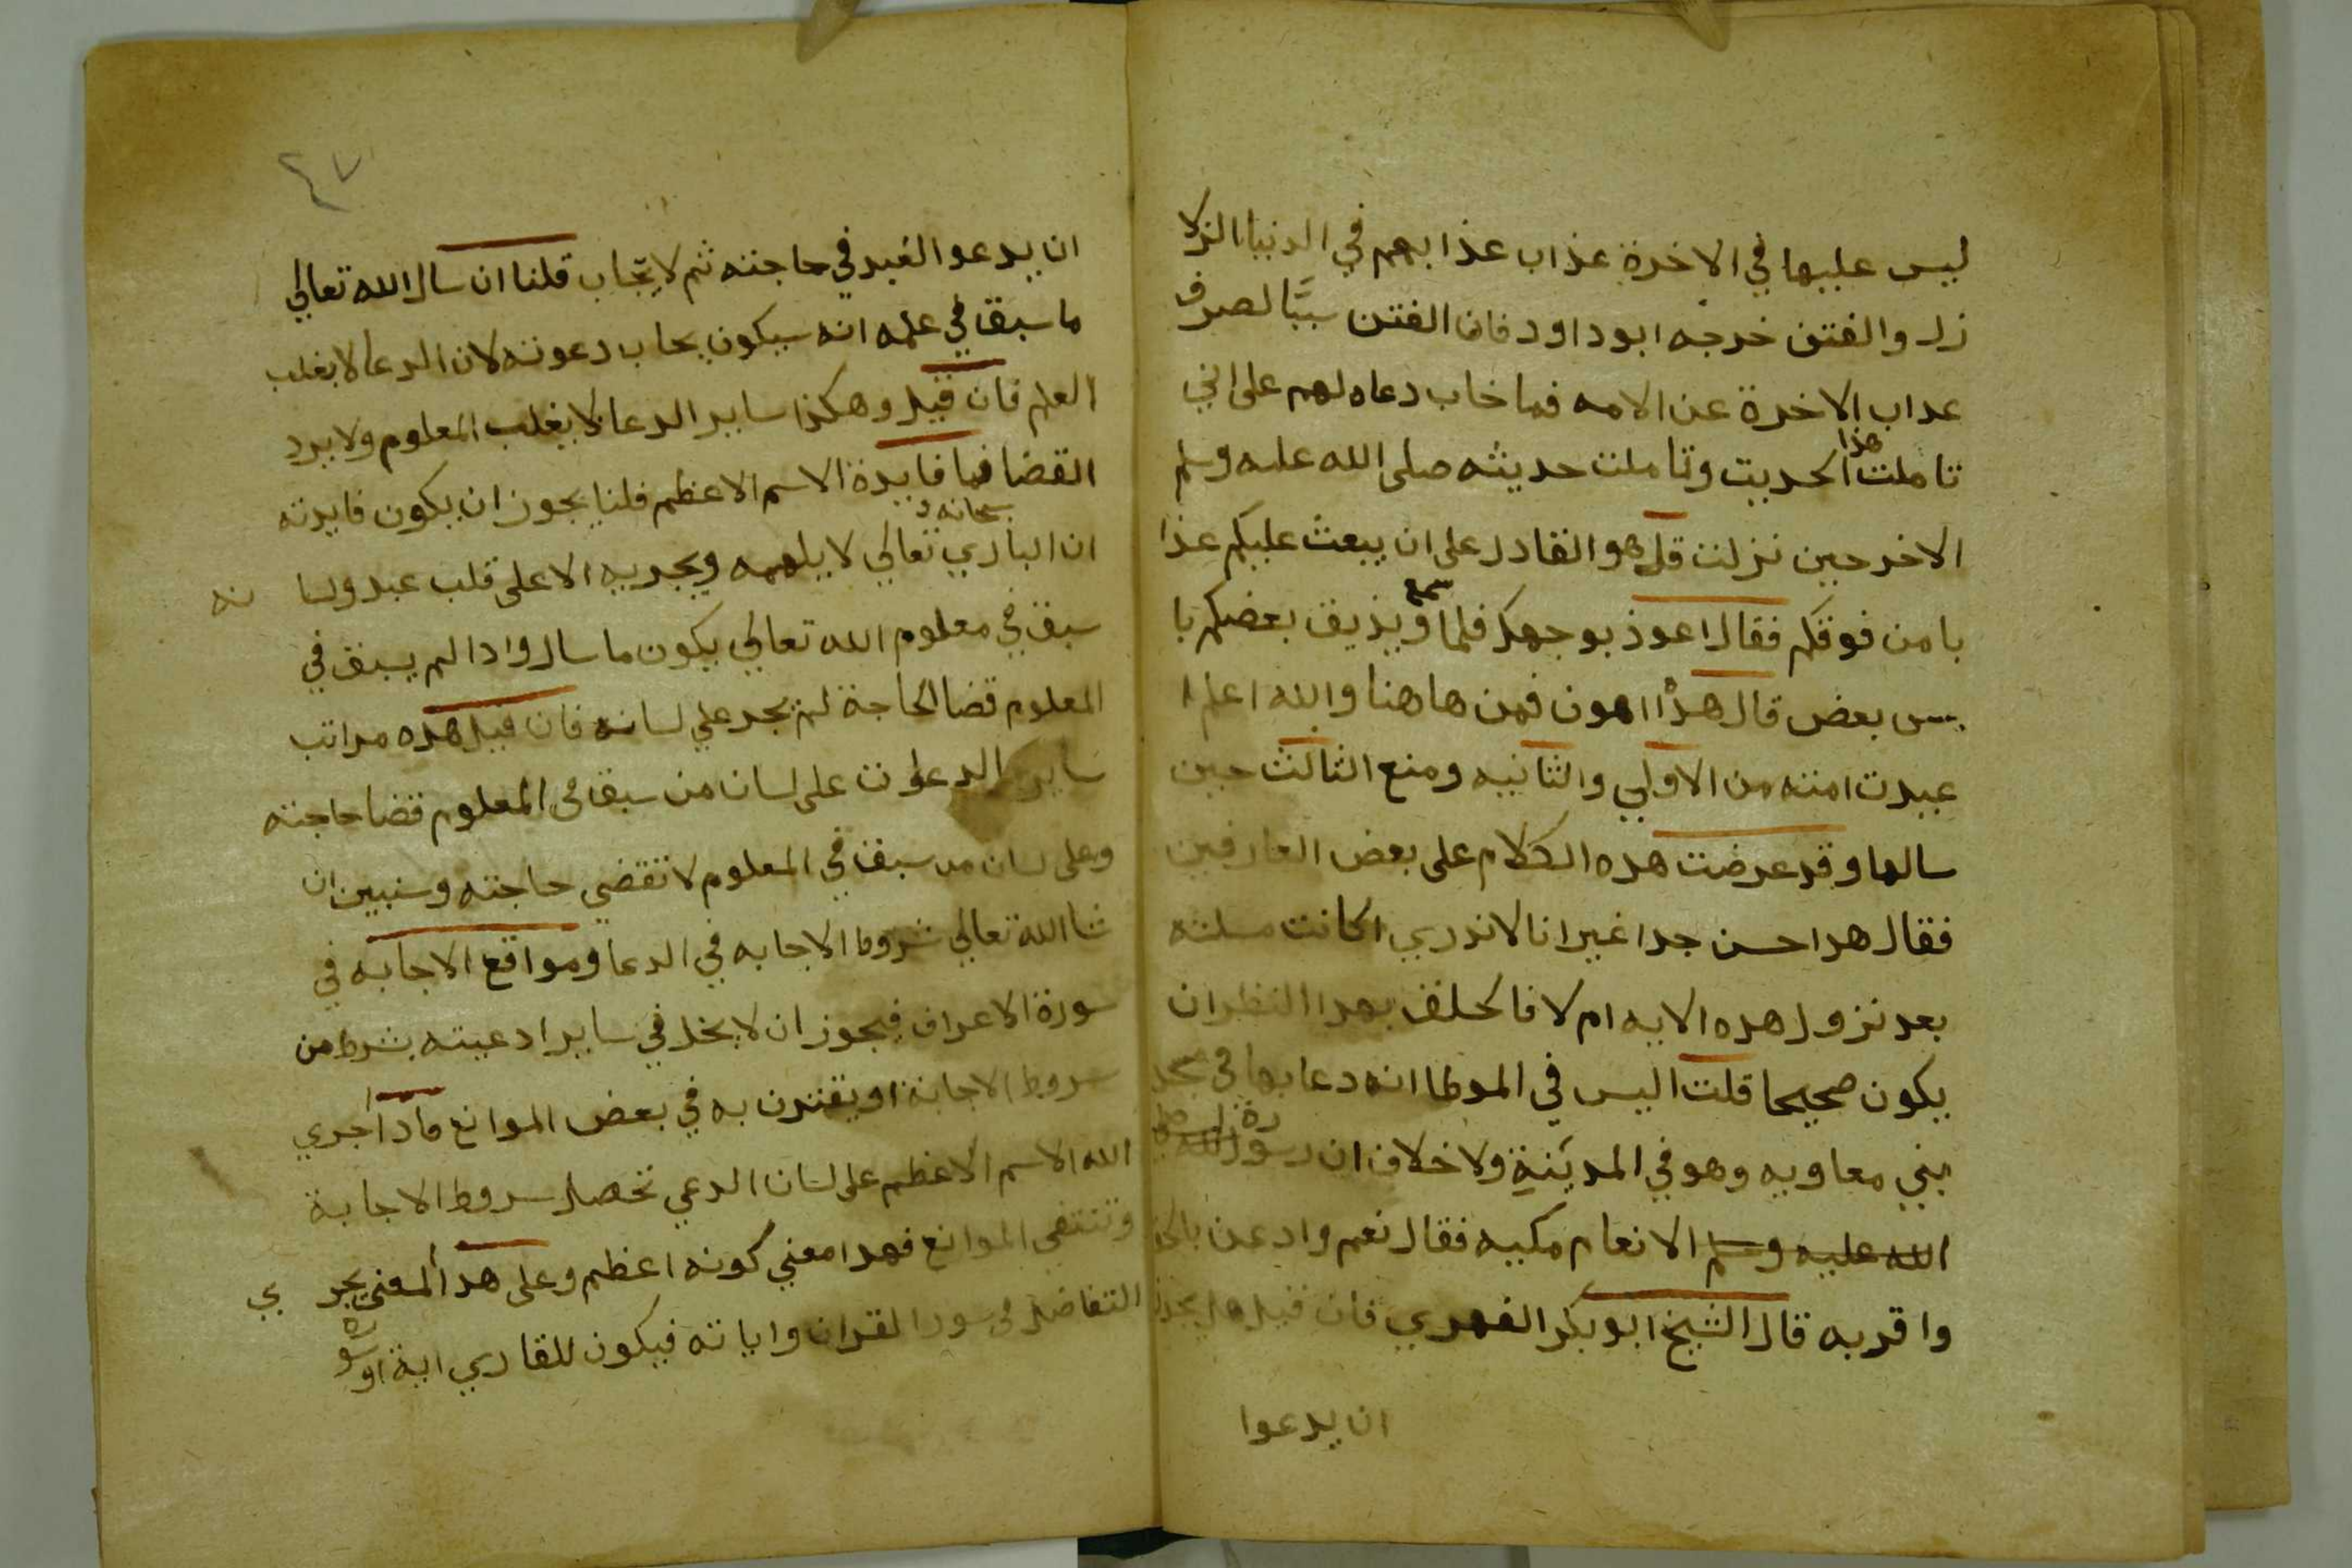 ليس عليها في الاخرة عذاب عذابهم في الدنيا الزلا
زل والفتن خرجه ابو داود فاذا الفتن سببًا لصرف
عداب الاخرة عن الامه فما خاب دعاه لهم على اني
تاملت هذا الحديت وتاملت حديثه صلى الله عليه وسلم
الاخر حين نزلت قل هو القادر على ان يبعث عليكم عذا
با من فوقكم فقال اعوذ بوجهك فلما سمع ويذيق بعضكم با
س بعض قال هذا اهون فمن هاهنا والله اعلم ا
عيدت امته من الاولي والثانيه ومنع الثالث حين
سالها وقد عرضت هده الكلام على بعض العارفين
فقال هدا حسن جدا غير انا لا ندري اكانت مسلته
بعد نزول هده الايه ام لا فالحلف بهدا النظر ان
يكون صحيحا قلت اليس في الموطا انه دعا بها في مسجد
بني معاويه وهو في المدينة ولا خلاف ان سورة
الله عليه وسلم الانعام مكيه فقال نعم وادعن بالحق
واقر به قال الشيخ ابو بكر الفهري فان قيل هل يجوز
ان يدعوا
٤٧
ان يدعو العبد في حاجته ثم لا يجاب قلنا ان سال الله تعالي
ما سبق في علمه انه سيكون يجاب دعوته لان الدعا لا يغلب
العلم فان قيل وهكذا ساير الدعا لا يغلب المعلوم ولا يرد
القضا فما فايدة الاسم الاعظم قلنا يجوز ان يكون فايدته
ان الباري سبحانه و تعالي لا يلهمه ويجريه الا على قلب عبد ولسا نه
سبق في معلوم الله تعالي يكون ما سال وادا لم يسبق في
المعلوم قضا الحاجة لم يجر علي لسانه فان قيل هده مراتب
ساير الدعوات على لسان من سبق في المعلوم قضا حاجته
وعلى لسان من سبق في المعلوم لا تقضي حاجته وسنبين ان
شا الله تعالي شروط الاجابه في الدعا ومواقع الاجابه في
سورة الاعراف فيجوز ان لا يخل في ساير ادعيته بشرط من
شروط الاجابة او يقترن به في بعض الموانع فاذا اجري
الله الاسم الاعظم على لسان الدعي تحصل شروط الاجابة
وتنتفي الموانع فهدا معني كونه اعظم وعلى هدا المعني يجر ي
التفاضل في سور القران واياته فيكون للقاري اية او سورة